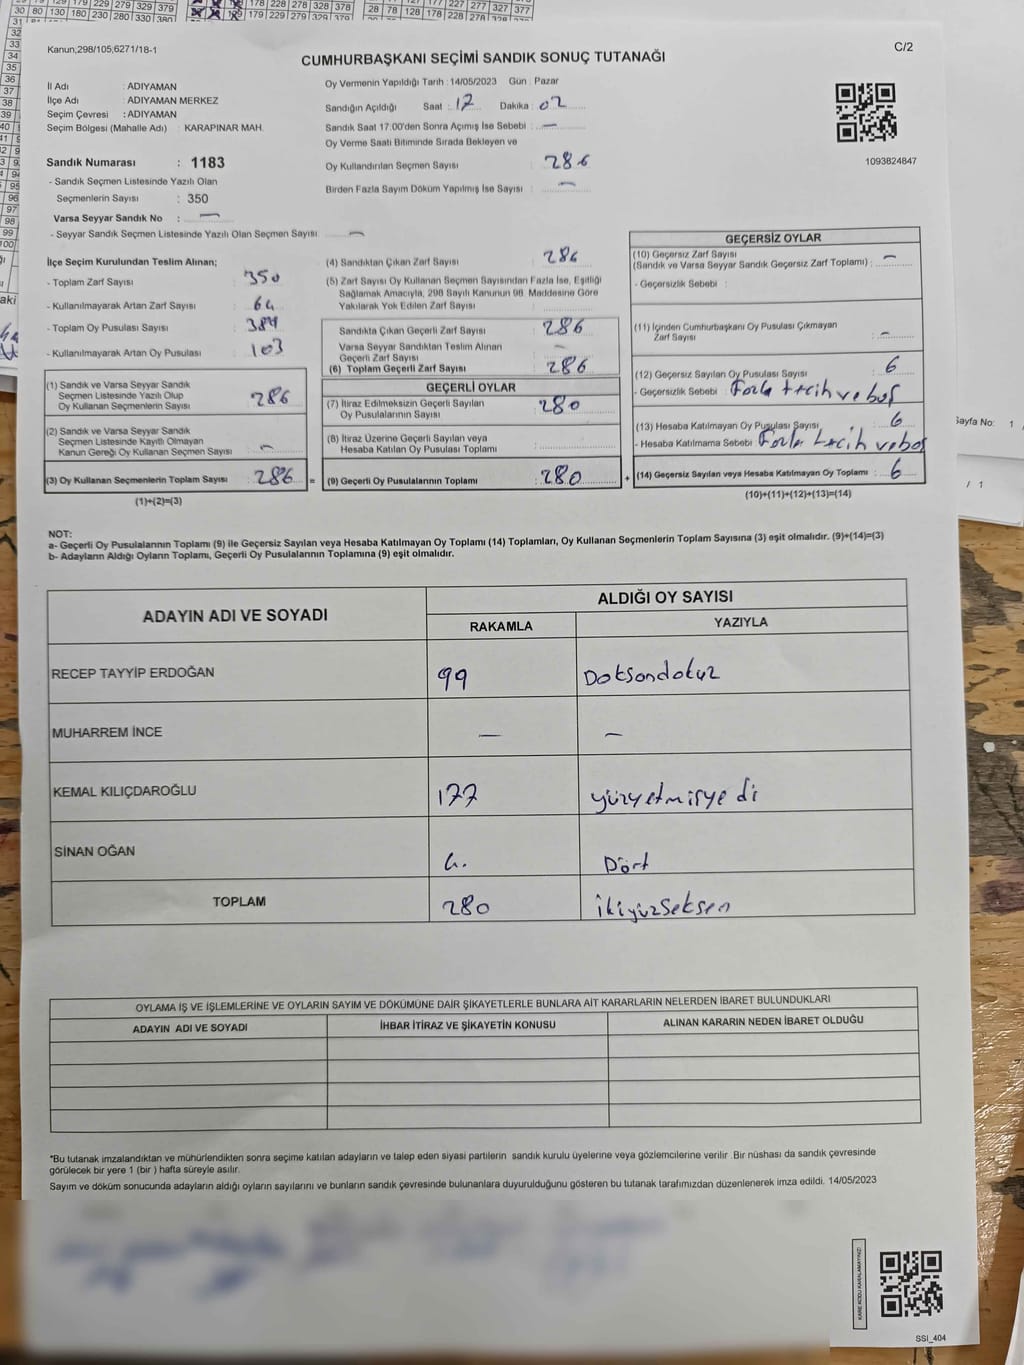 Kanun,298/105;6271/18-1
C/2
CUMHURBAŞKANI SEÇİMİ SANDIK SONUÇ TUTANAĞI
İl Adı : ADIYAMAN
İlçe Adı : ADIYAMAN MERKEZ
Seçim Çevresi : ADIYAMAN
Seçim Bölgesi (Mahalle Adı) : KARAPINAR MAH.
Sandık Numarası : 1183
- Sandık Seçmen Listesinde Yazılı Olan
Seçmenlerin Sayısı : 350
Varsa Seyyar Sandık No : —
- Seyyar Sandık Seçmen Listesinde Yazılı Olan Seçmen Sayısı : —
Oy Vermenin Yapıldığı Tarih : 14/05/2023 Gün : Pazar
Sandığın Açıldığı Saat : 17 Dakika : 02
Sandık Saat 17:00'den Sonra Açımış İse Sebebi : —
Oy Verme Saati Bitiminde Sırada Bekleyen ve
Oy Kullandırılan Seçmen Sayısı : 286
Birden Fazla Sayım Döküm Yapılmış İse Sayısı : —
1093824847
İlçe Seçim Kurulundan Teslim Alınan;
- Toplam Zarf Sayısı : 350
- Kullanılmayarak Artan Zarf Sayısı : 64
- Toplam Oy Pusulası Sayısı : 389
- Kullanılmayarak Artan Oy Pusulası : 103
(1) Sandık ve Varsa Seyyar Sandık
Seçmen Listesinde Yazılı Olup
Oy Kullanan Seçmenlerin Sayısı : 286
(2) Sandık ve Varsa Seyyar Sandık
Seçmen Listesinde Kayıtlı Olmayan
Kanun Gereği Oy Kullanan Seçmen Sayısı : —
(3) Oy Kullanan Seçmenlerin Toplam Sayısı : 286 =
(1)+(2)=(3)
(4) Sandıktan Çıkan Zarf Sayısı : 286
(5) Zarf Sayısı Oy Kullanan Seçmen Sayısından Fazla İse, Eşitliği
Sağlamak Amacıyla, 298 Sayılı Kanunun 98. Maddesine Göre
Yakılarak Yok Edilen Zarf Sayısı :
Sandıkta Çıkan Geçerli Zarf Sayısı : 286
Varsa Seyyar Sandıktan Teslim Alınan
Geçerli Zarf Sayısı : —
(6) Toplam Geçerli Zarf Sayısı : 286
GEÇERLİ OYLAR
(7) İtiraz Edilmeksizin Geçerli Sayılan
Oy Pusulalarının Sayısı : 280
(8) İtiraz Üzerine Geçerli Sayılan veya
Hesaba Katılan Oy Pusulası Toplamı :
(9) Geçerli Oy Pusulalarının Toplamı : 280 +
GEÇERSİZ OYLAR
(10) Geçersiz Zarf Sayısı
(Sandık ve Varsa Seyyar Sandık Geçersiz Zarf Toplamı) : —
- Geçersizlik Sebebi :
(11) İçinden Cumhurbaşkanı Oy Pusulası Çıkmayan
Zarf Sayısı : —
(12) Geçersiz Sayılan Oy Pusulası Sayısı : 6
- Geçersizlik Sebebi : Fazla tercih ve boş
(13) Hesaba Katılmayan Oy Pusulası Sayısı : 6
- Hesaba Katılmama Sebebi : Fazla tercih ve boş
(14) Geçersiz Sayılan veya Hesaba Katılmayan Oy Toplamı : 6
(10)+(11)+(12)+(13)=(14)
NOT:
a- Geçerli Oy Pusulalarının Toplamı (9) ile Geçersiz Sayılan veya Hesaba Katılmayan Oy Toplamı (14) Toplamları, Oy Kullanan Seçmenlerin Toplam Sayısına (3) eşit olmalıdır. (9)+(14)=(3)
b- Adayların Aldığı Oyların Toplamı, Geçerli Oy Pusulalarının Toplamına (9) eşit olmalıdır.
ADAYIN ADI VE SOYADI
ALDIĞI OY SAYISI
RAKAMLA YAZIYLA
RECEP TAYYİP ERDOĞAN 99 Doksandokuz
MUHARREM İNCE — —
KEMAL KILIÇDAROĞLU 177 yüzyetmişyedi
SİNAN OĞAN 4. Dört
TOPLAM 280 ikiyüzseksen
OYLAMA İŞ VE İŞLEMLERİNE VE OYLARIN SAYIM VE DÖKÜMÜNE DAİR ŞİKAYETLERLE BUNLARA AİT KARARLARIN NELERDEN İBARET BULUNDUKLARI
ADAYIN ADI VE SOYADI İHBAR İTİRAZ VE ŞİKAYETİN KONUSU ALINAN KARARIN NEDEN İBARET OLDUĞU
*Bu tutanak imzalandıktan ve mühürlendikten sonra seçime katılan adayların ve talep eden siyasi partilerin sandık kurulu üyelerine veya gözlemcilerine verilir. Bir nüshası da sandık çevresinde
görülecek bir yere 1 (bir ) hafta süreyle asılır.
Sayım ve döküm sonucunda adayların aldığı oyların sayılarını ve bunların sandık çevresinde bulunanlara duyurulduğunu gösteren bu tutanak tarafımızdan düzenlenerek imza edildi. 14/05/2023
KARE KODU KARALAMAYINIZ!
SSI_404
Sayfa No: 1
/ 1